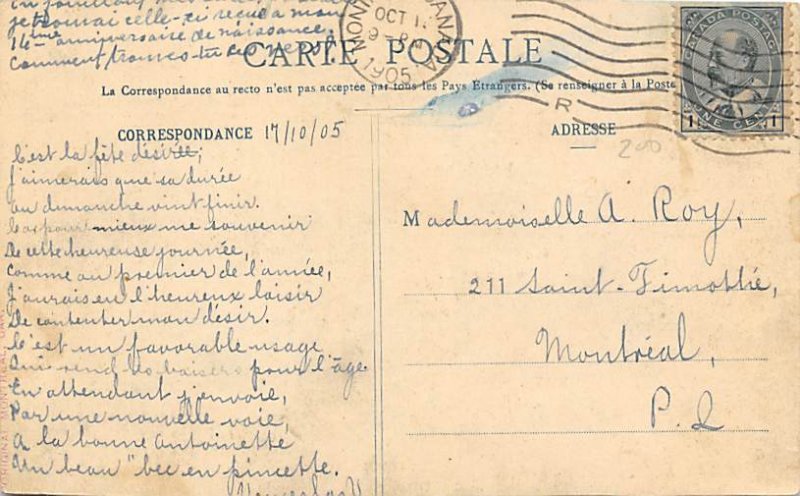 je
14ème anniversaire de naissance.
CARTE POSTALE
OCT 1
1905
CANADA POSTAGE
ONE CENT
1 1
La Correspondance au recto n'est pas acceptée par tous les Pays Étrangers. (Se renseigner à la Poste
R
CORRESPONDANCE 17/10/05
ADRESSE
200
C'est la fête désirée;
J'aimerais que sa durée
au dimanche vint finir.
pour mieux me souvenir
De cette heureuse journée,
Comme au premier de l'année,
J'aurais eu l'heureux loisir
De contenter mon désir.
C'est un favorable usage
Qui rend les baisers pour l'âge.
En attendant j'envoie,
Par une nouvelle voie,
A la bonne Antoinette
Un beau "bec en pincette.
Mademoiselle A. Roy,
211 Saint-Timothée,
Montréal,
P. Q